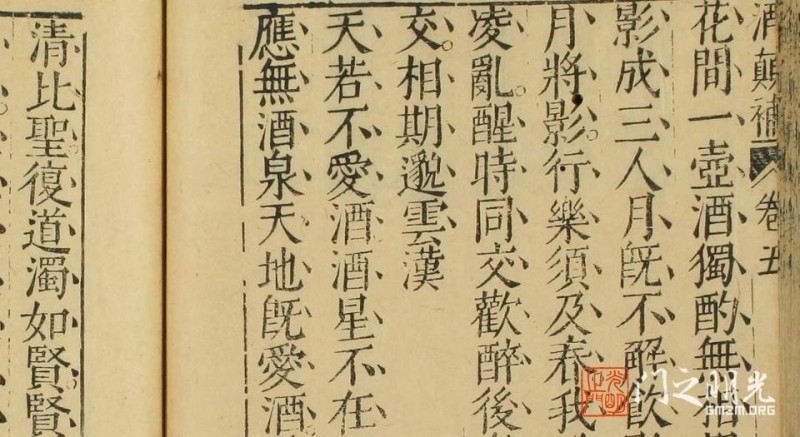 酒顛補 卷
花間一壺酒獨酌無相
影成三人月既不解飲
月將影。行樂須及春我
凌亂。醒時同交歡醉後
交。相期邈雲漢
天若不愛酒酒星不在
應無酒泉天地既愛酒
清比聖復道濁如賢。賢
光明之門
GMZM.ORG